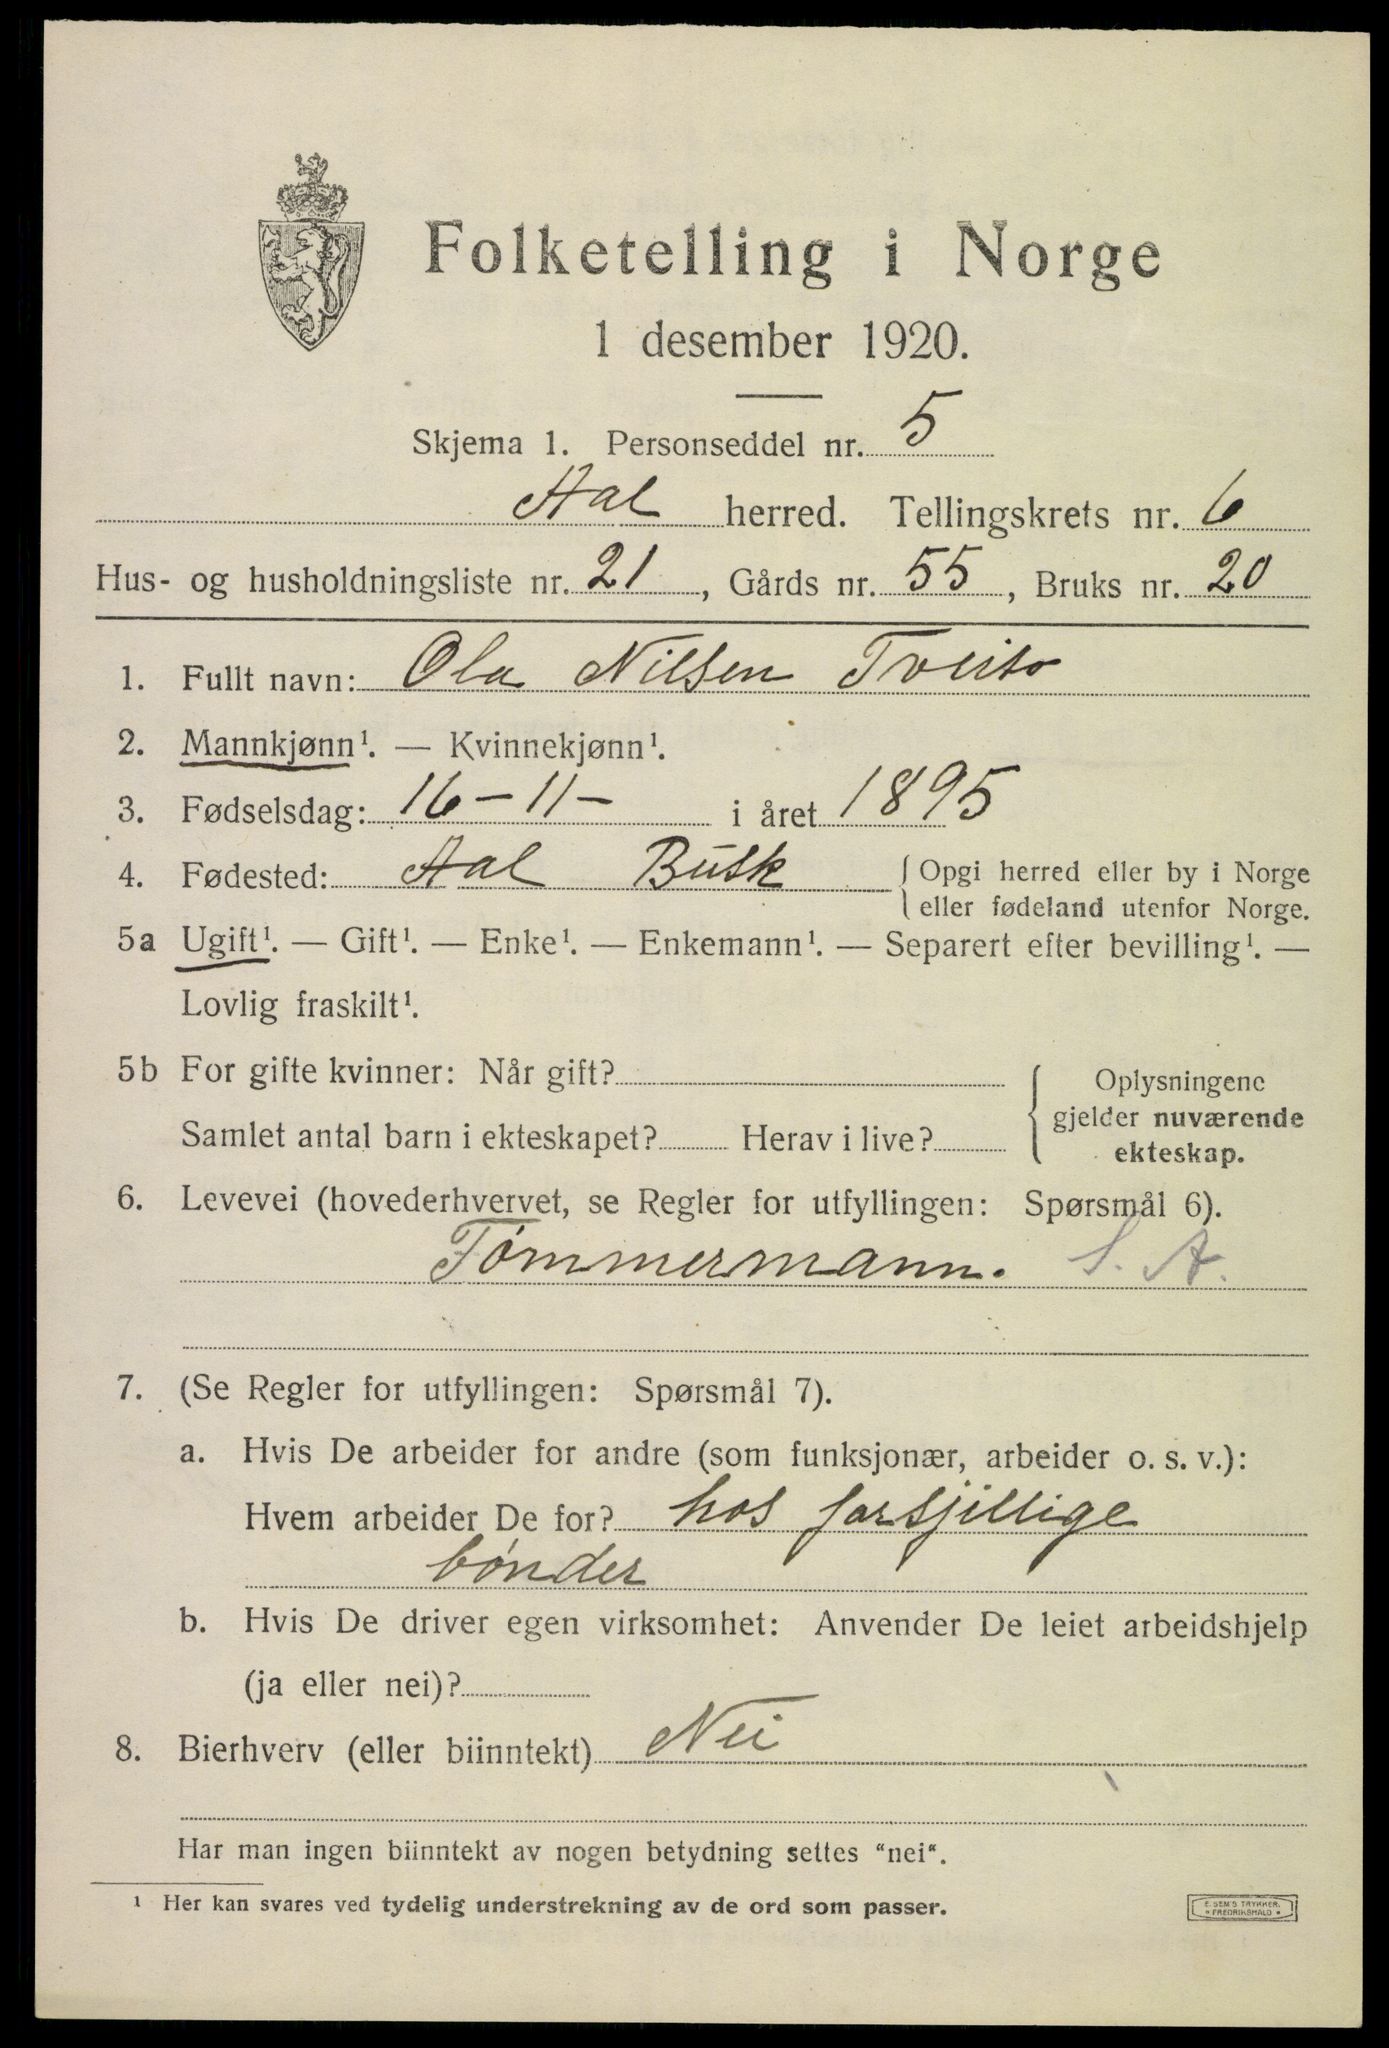 Folketelling i Norge
1 desember 1920.
Skjema 1. Personseddel nr. 5
Aal herred. Tellingskrets nr. 6
Hus- og husholdningsliste nr. 21, Gårds nr. 55, Bruks nr. 20
1. Fullt navn: Ola Nilsen Tveito
2. Mannkjønn¹. — Kvinnekjønn¹.
3. Fødselsdag: 16 - 11 - i året 1895
4. Fødested: Aal Busk { Opgi herred eller by i Norge
eller fødeland utenfor Norge.
5a Ugift¹. — Gift¹. — Enke¹. — Enkemann¹. — Separert efter bevilling¹. —
Lovlig fraskilt¹.
5b For gifte kvinner: Når gift?
Samlet antal barn i ekteskapet? Herav i live?
{ Oplysningene
gjelder nuværende
ekteskap.
6. Levevei (hovederhvervet, se Regler for utfyllingen: Spørsmål 6).
Tømmermann. S. A.
7. (Se Regler for utfyllingen: Spørsmål 7).
a. Hvis De arbeider for andre (som funksjonær, arbeider o. s. v.):
Hvem arbeider De for? hos forsjillige
bønder
b. Hvis De driver egen virksomhet: Anvender De leiet arbeidshjelp
(ja eller nei)?
8. Bierhverv (eller biinntekt) Nei
Har man ingen biinntekt av nogen betydning settes "nei".
¹ Her kan svares ved tydelig understrekning av de ord som passer.
E. SEM'S TRYKKER.
• FREDRIKSHALD •